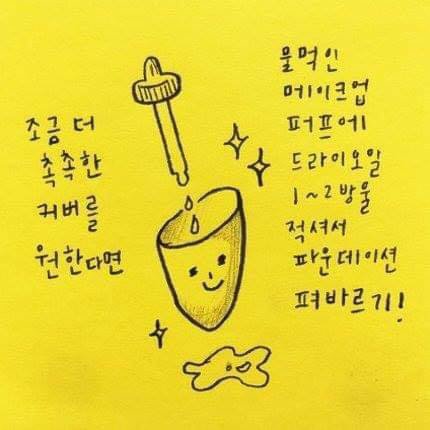 조금 더
촉촉한
커버를
원한다면
물먹인
메이크업
퍼프에
드라이오일
1~2방울
적셔서
파운데이션
펴바르기!